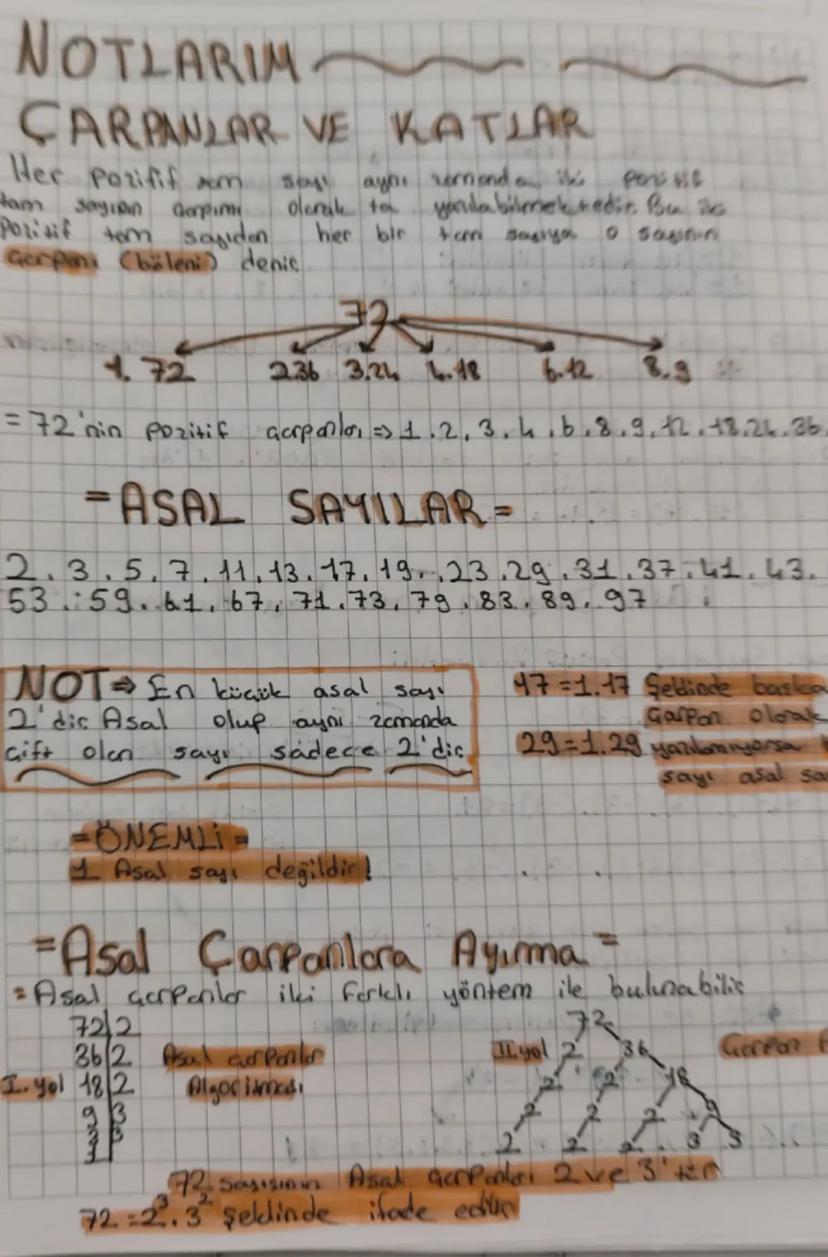 NOTLARIM
ÇARPANLAR VE KATLAR
Her pozitif tam sayı aynı zamanda iki pozitif
tam sayının çarpımı olarak ta yazılabilmektedir. Bu iki
Pozitif tam sayıdan her bir tam sayıya o sayının
Çarpanı (böleni) denir
72
1.72 2.36 3.24 4.18 6.12 8.9
= 72'nin pozitif çarpanları => 1.2.3.4.6.8.9.12.18.24.36.
= ASAL SAYILAR =
2.3.5.7.11.13.17.19.23.29.31.37.41.43.
53.59.61.67.71.73.79.83.89.97
NOT => En küçük asal sayı
2'dir Asal olup aynı zamanda
çift olan sayı sadece 2'dir
17 = 1.17 Şeklinde başka
Çarpan olarak
29 = 1.29 yazılamıyorsa
sayı asal sa
= ÖNEMLİ =
1 Asal sayı değildir!
= Asal Çarpanlara Ayırma =
= Asal çarpanlar iki farklı yöntem ile bulunabilir
72 2
36 2 Asal çarpanlar
I. yol 18 2 Algoritması
9 3
3 3
1
72
II. yol 2 36 Çarpan
2 2 18
2 2 2 9
2 2 2 3 3
72 sayısının Asal çarpanları 2 ve 3'tür
72 = 2³.3² Şeklinde ifade edilir